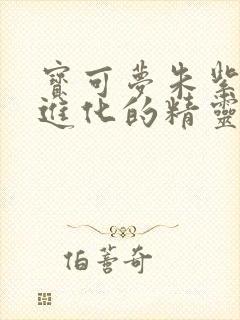 寶可夢朱紫
進化的精靈
伯蓍奇